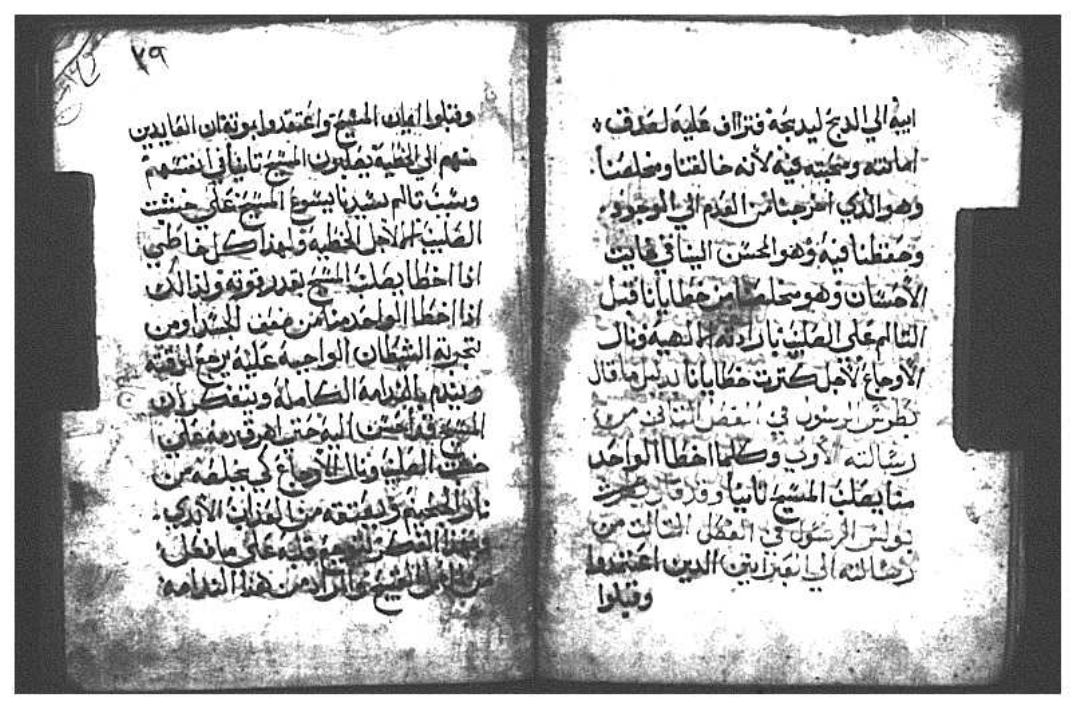 ابنه الي الدبح ليدبحه فتزااف عليه لصدق
امانته ومحبته فيه لانه خالقنا ومخلصنا
وهو الذي اخرجنا من العدم الي الوجود
وحفظنا فيه وهو المحسن الينا في غايت
الاحسان وهو مخلصنا من خطايانا قبل
التالم علي الصليب بارادته الالهيه ونال
الاوجاع لاجل كترت خطايانا لدلس ما قال
بطرس الرسول في الفصل التاني من
رسالته الاولي وكلما اخطا الواحد
منا يصلب المسيح تانياً وقد قال
بولس الرسول في الفصل التالت من
رسالته الي العبرانيين الدين اعتمدوا
وقبلوا
٣٩
وقبلوا ايمان المسيح واعتمدوا بموته ان العايدين
منهم الي الخطيه يصلبون المسيح تانياً في انفسهم
وسبب تالم سيدنا يسوع المسيح علي خشبت
الصليب لاجل الخطيه ولهدا كل خاطي
ادا اخطا يصلب المسيح بقدر قوته ولدالك
ادا اخطا الواحد منا من ضعف الجسد او من
تجربة الشيطان الواجبه عليه يرجع لوقته
ويندم بالندامه الكامله ويتفكر ان
المسيح قد احسن اليه حتي اهرق دمه علي
خشبت الصليب ونال الاوجاع كي يخلصه من
نار الجحيم ويعتقه من العداب الابدي
وبهدا الفكر يتوجع قلبه علي ما فعل
من المسيح والمراد من هدا الندامه